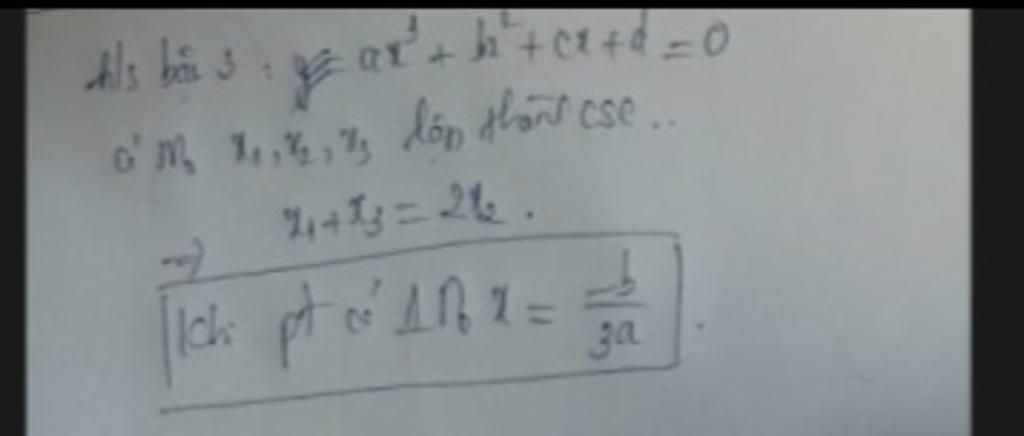 bậc 3: ax³ + bx² + cx + d = 0
có n₀ x₁, x₂, x₃ lập thành CSC..
x₁ + x₃ = 2x₂.
→
Khi pt có 1 n₀ x = -b/3a.